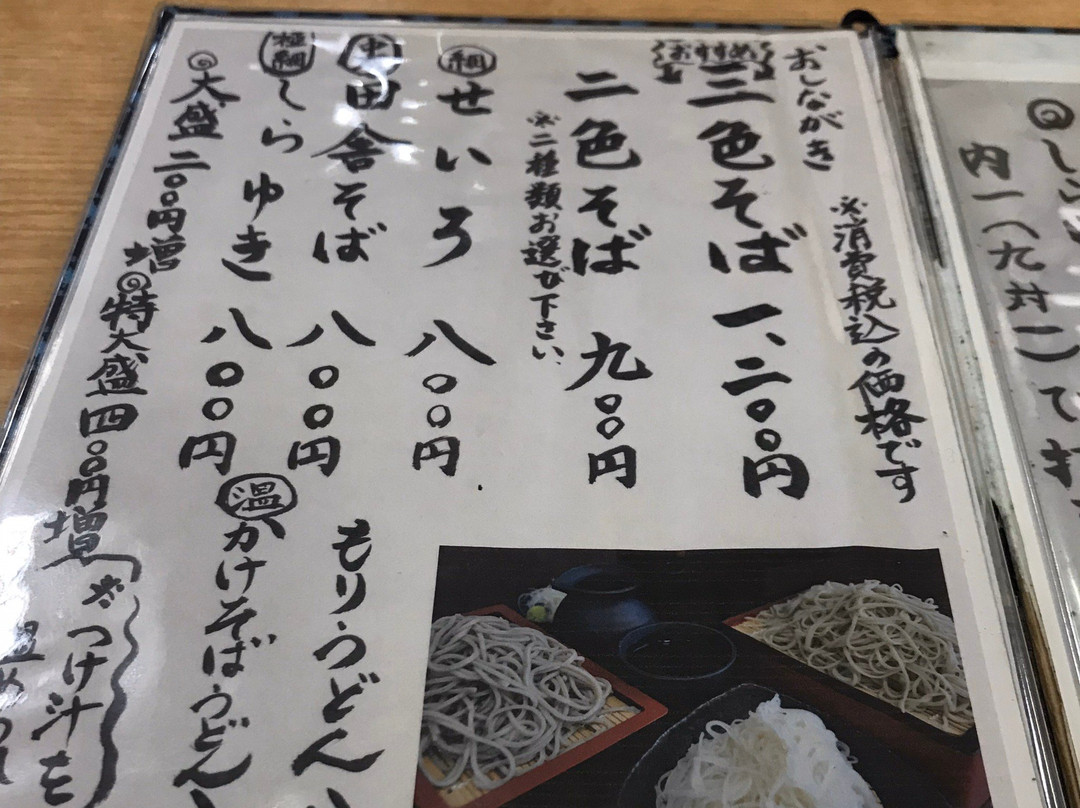 おしながき
※消費税込の価格です
おすすめ
三色そば 一、二〇〇円
二色そば 九〇〇円
※二種類お選び下さい、
細 せいろ 八〇〇円
中 田舎そば 八〇〇円
極細 しらゆき 八〇〇円
◎大盛 二〇〇円増
◎特大盛 四〇〇円増
もりうどん
温 かけそばうどん
※つけ汁を
内一(九対一)で打